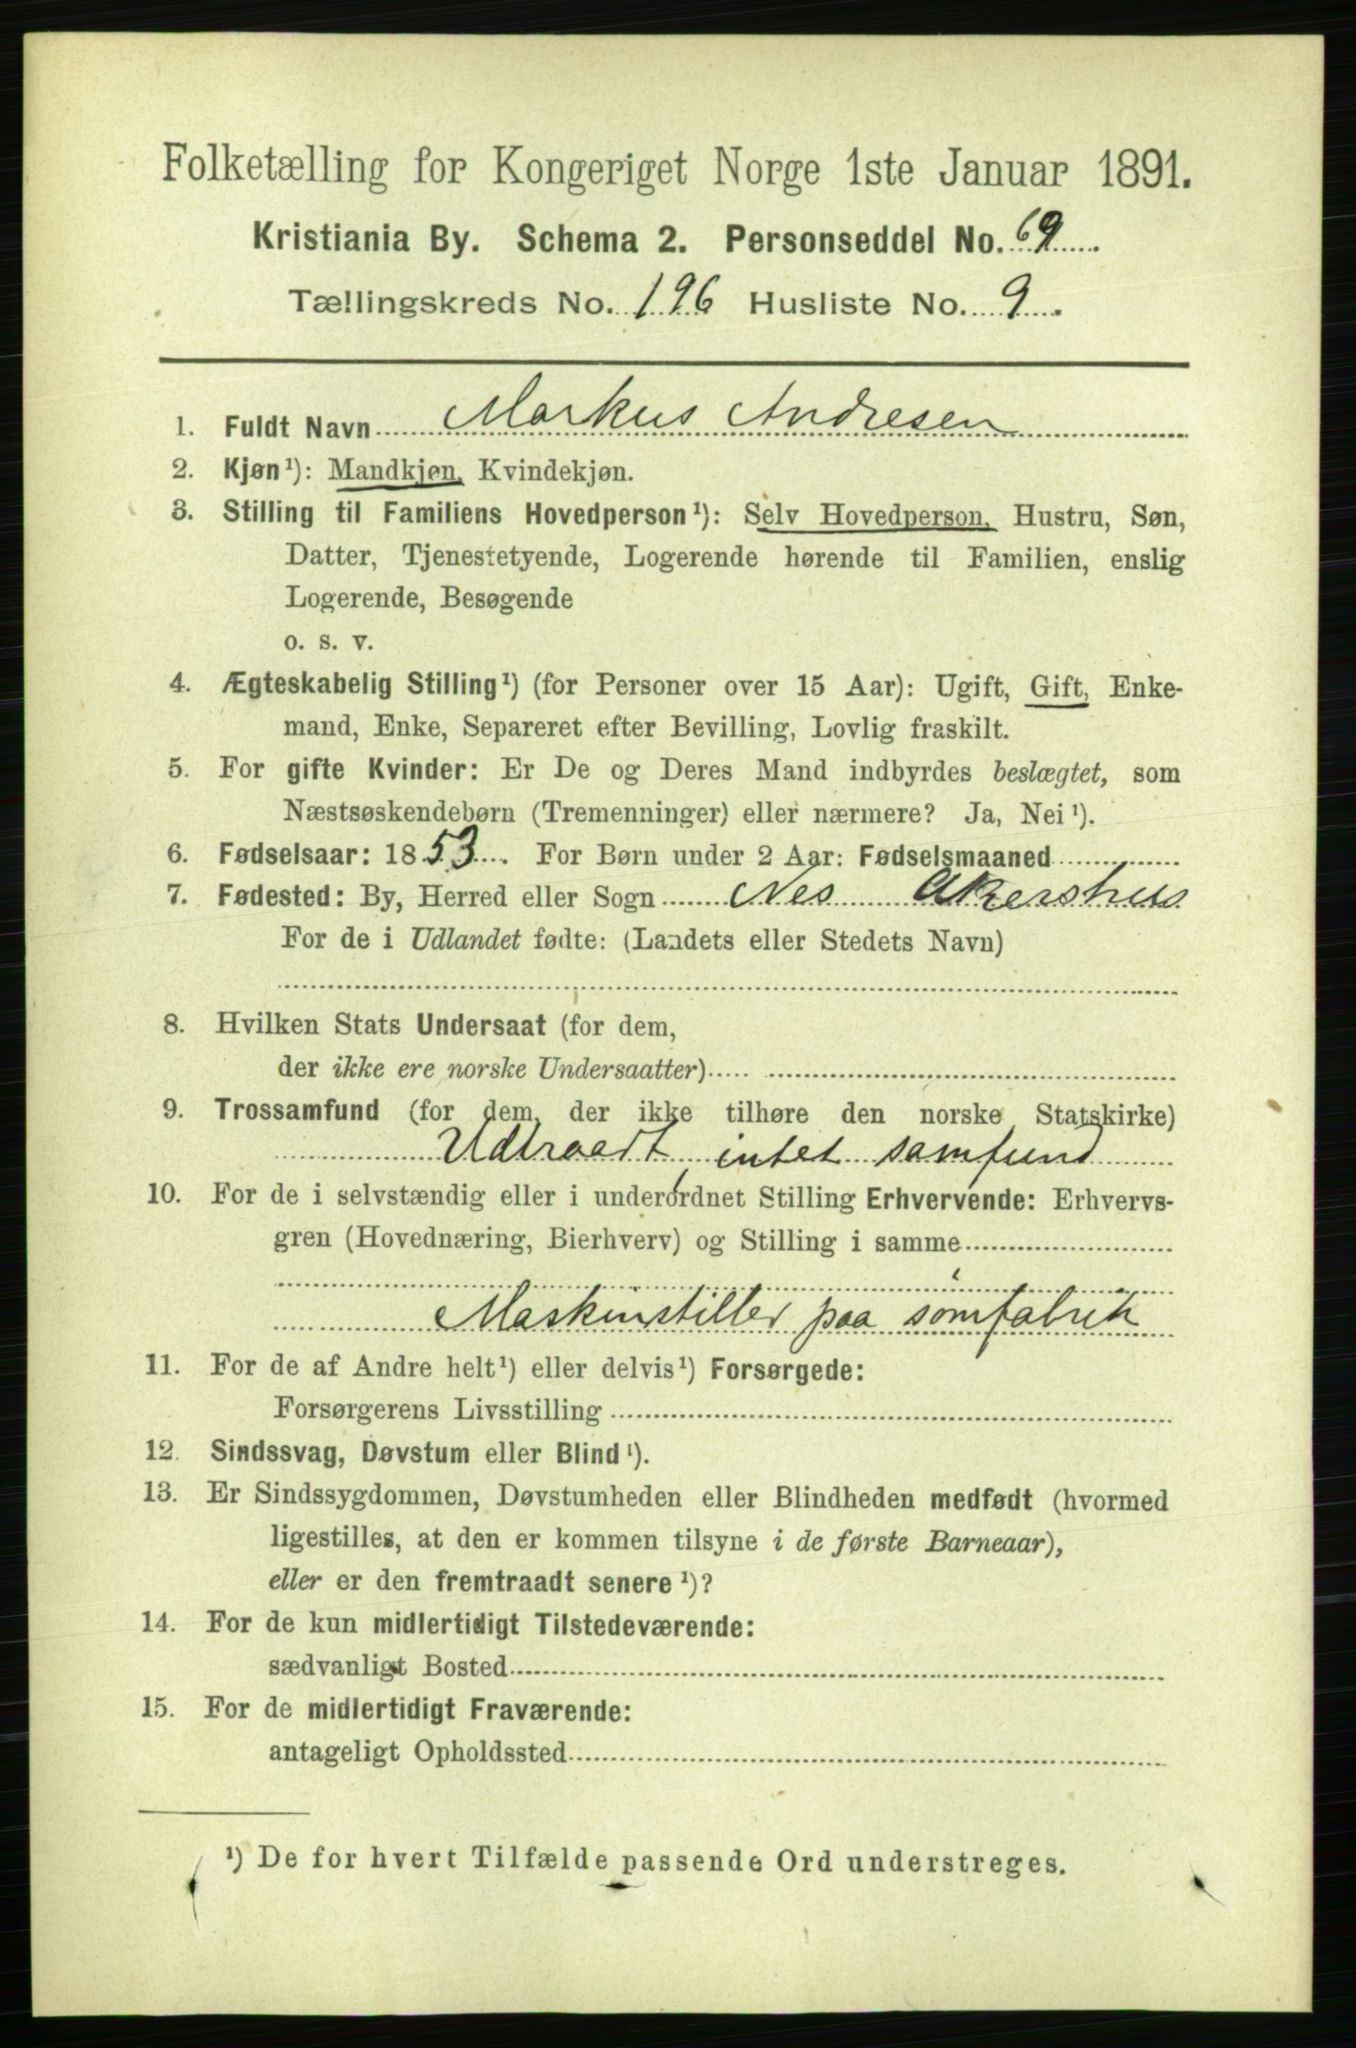 Folketælling for Kongeriget Norge 1ste Januar 1891.
Kristiania By. Schema 2. Personseddel No. 69
Tællingskreds No. 196 Husliste No. 9.
1. Fuldt Navn Markus Andresen
2. Kjøn¹): Mandkjøn, Kvindekjøn.
3. Stilling til Familiens Hovedperson¹): Selv Hovedperson, Hustru, Søn,
Datter, Tjenestetyende, Logerende hørende til Familien, enslig
Logerende, Besøgende
o. s. v.
4. Ægteskabelig Stilling¹) (for Personer over 15 Aar): Ugift, Gift, Enke-
mand, Enke, Separeret efter Bevilling, Lovlig fraskilt.
5. For gifte Kvinder: Er De og Deres Mand indbyrdes beslægtet, som
Næstsøskendebørn (Tremenninger) eller nærmere? Ja, Nei¹).
6. Fødselsaar: 1853. For Børn under 2 Aar: Fødselsmaaned
7. Fødested: By, Herred eller Sogn Nes Akershus
For de i Udlandet fødte: (Landets eller Stedets Navn)
8. Hvilken Stats Undersaat (for dem,
der ikke ere norske Undersaatter)
9. Trossamfund (for dem, der ikke tilhøre den norske Statskirke)
Udtraadt, intet samfund
10. For de i selvstændig eller i underordnet Stilling Erhvervende: Erhvervs-
gren (Hovednæring, Bierhverv) og Stilling i samme
Maskinstiller paa sømfabrik
11. For de af Andre helt¹) eller delvis¹) Forsørgede:
Forsørgerens Livsstilling
12. Sindssvag, Døvstum eller Blind¹).
13. Er Sindssygdommen, Døvstumheden eller Blindheden medfødt (hvormed
ligestilles, at den er kommen tilsyne i de første Barneaar),
eller er den fremtraadt senere¹)?
14. For de kun midlertidigt Tilstedeværende:
sædvanligt Bosted
15. For de midlertidigt Fraværende:
antageligt Opholdssted
¹) De for hvert Tilfælde passende Ord understreges.